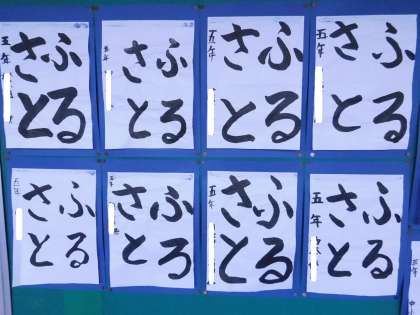 ふる
さと
五年
ふる
さと
五年
ふる
さと
五年
ふる
さと
五年
ふる
さと
五年
ふる
さと
ふる
さと
五年
ふる
さと
五年